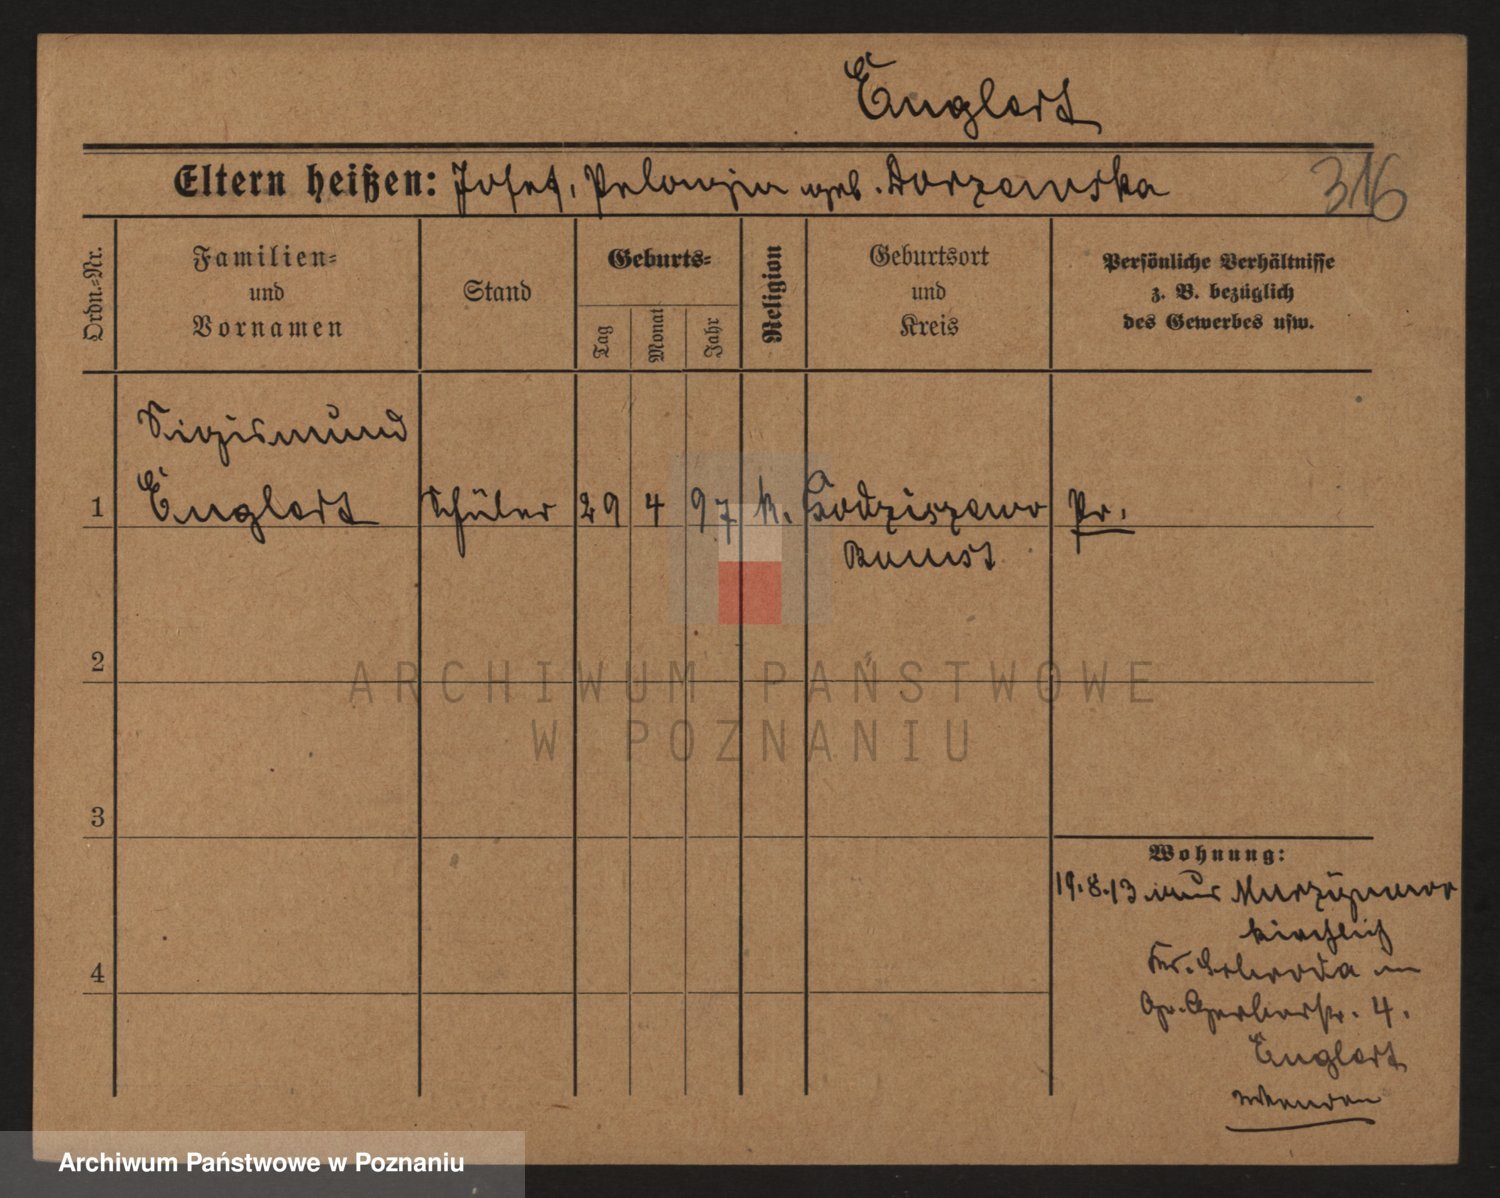 Englert
Eltern heißen: Josef, Pelagia geb. Dorzewska
316
Ordn.-Nr.
Familien-
und
Vornamen
Stand
Geburts-
Tag
Monat
Jahr
Religion
Geburtsort
und
Kreis
Persönliche Verhältnisse
z. B. bezüglich
des Gewerbes usw.
Sigismund
1 Englert Schüler 29 4 97 k. Godziszewo Pr.
Bomst
2
ARCHIWUM PAŃSTWOWE
W POZNANIU
3
Wohnung:
19.8.13 aus Murzynowo
kirchlich
Kr. Schroda
Gr. Gerberstr. 4.
Englert
wenden
4
Archiwum Państwowe w Poznaniu